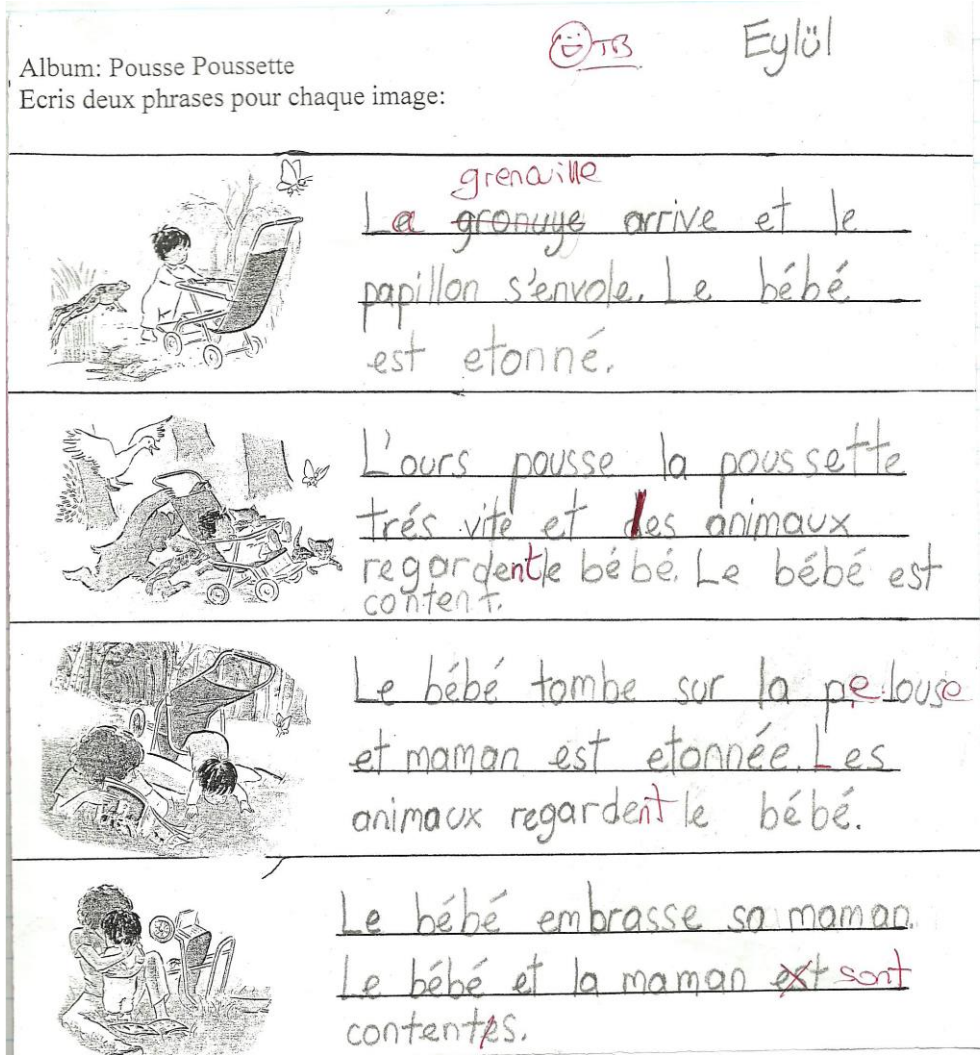 TB Eylül
Album: Pousse Poussette
Ecris deux phrases pour chaque image:
grenouille
La gronuye arrive et le
papillon s'envole. Le bébé
est etonné.
L'ours pousse la poussette
trés vite et les animaux
regardent le bébé. Le bébé est
content.
Le bébé tombe sur la pelouse
et maman est etonnée. Les
animaux regardent le bébé.
Le bébé embrasse sa maman.
Le bébé et la maman est sont
contents.